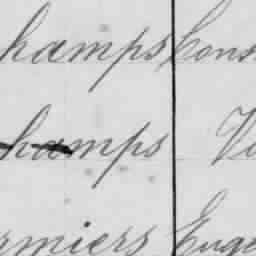 hamps Cons
hamps Vi
rmiers Euge